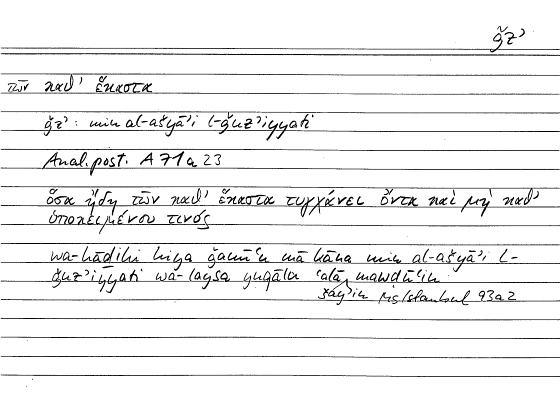 ǧzʾ
τῶν καθʼ ἕκαστα
ǧzʾ : min al-ašyāʾi l-ǧuzʾiyyati
Anal. post. A 71a23
ὅσα ἤδη τῶν καθʼ ἕκαστα τυγχάνει ὄντα καὶ μὴ καθʼ
ὑποκειμένου τινός
wa-hāḏihi hiya ǧamīʿu mā kāna min al-ašyāʾi l-
ǧuzʾiyyati wa-laysa yuqālu ʿalā mawḍūʿin
šayʾin Istanbul 93a2